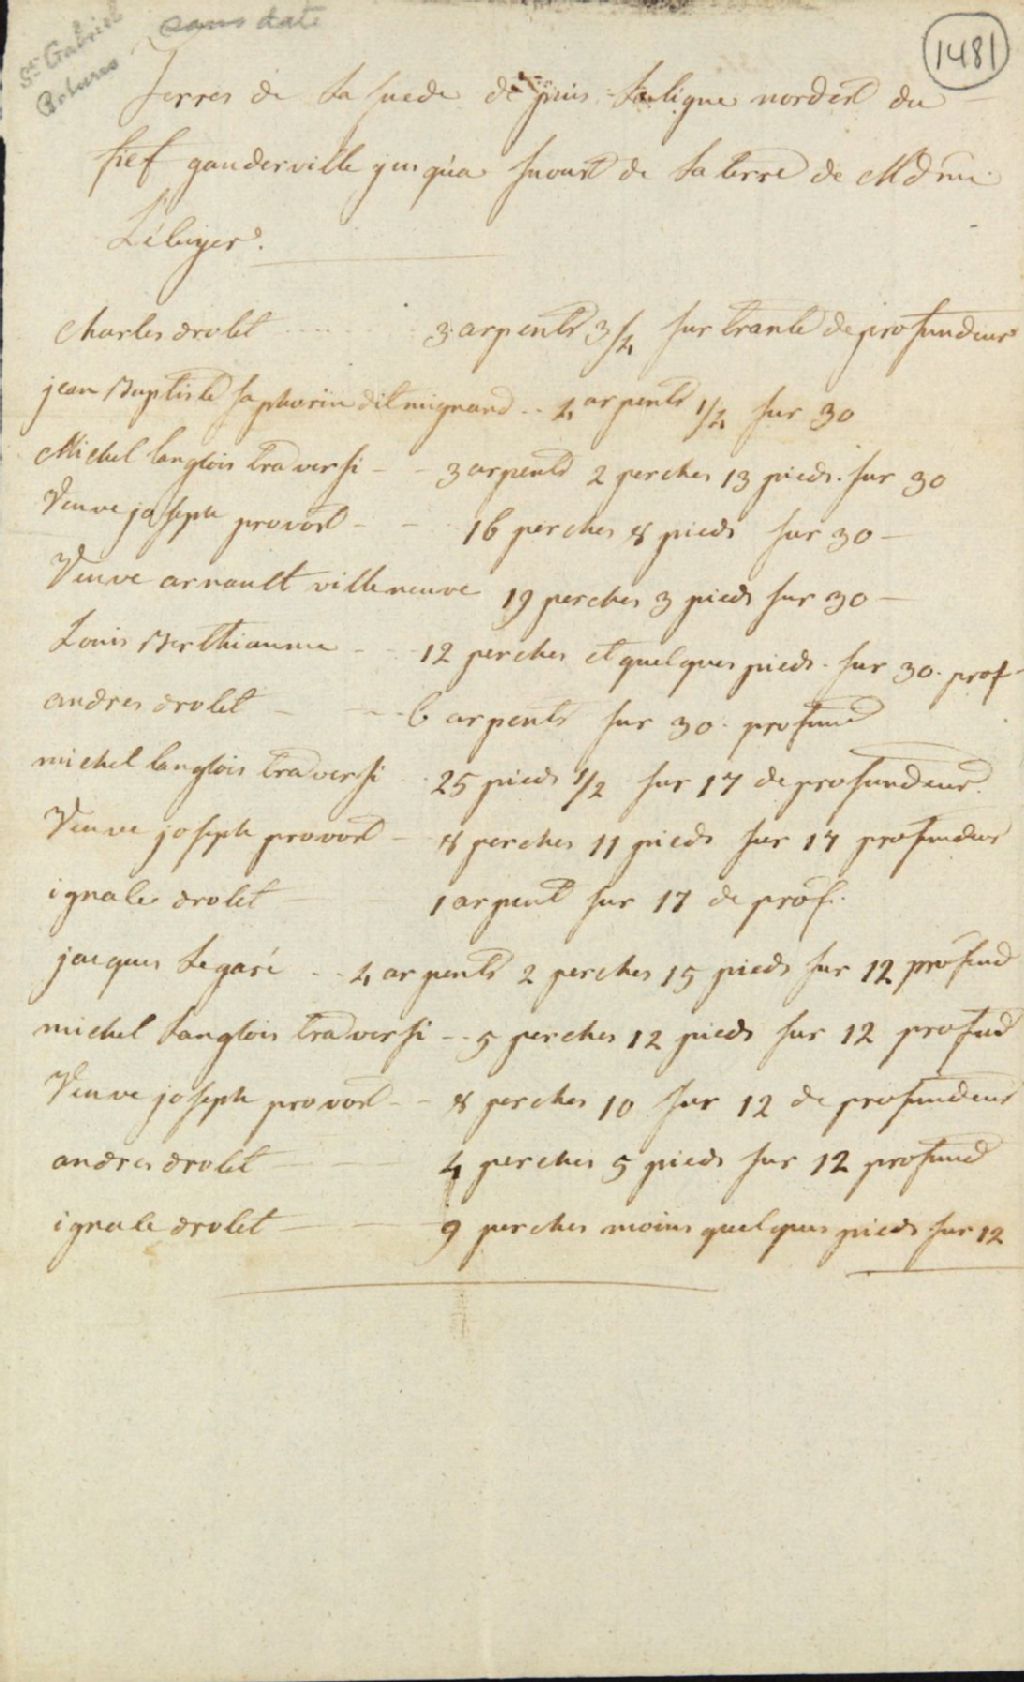 sans date
St Gabriel
1481
Terres de la suede depuis la ligne nordest du
fief gauderville jusqua suouest de la terre de Mdme
L'écuyer.
Charles drolet 3 arpents 3/4 sur trante de profundeur
jean Baptiste saphorin dit mignard .. 4 arpents 1/4 sur 30
Michel langlois traversi - - 3 arpents 2 perches 13 pieds. sur 30
Veuve joseph provost - - 16 perches 8 pieds sur 30 -
Veuve arnault villeneuve 19 perches 3 pieds sur 30 -
Louis Berthiaume - - 12 perches et quelques pieds. sur 30. prof
andres drolet - - 6 arpents sur 30. profund
michel langlois traversi .. 25 pieds 1/2 sur 17 de profundeur.
Veuve joseph provost - 8 perches 11 pieds sur 17 profundeur
ignale drolet 1 arpent sur 17 de prof.
jacques Legaré .. 4 arpents 2 perches 15 pieds sur 12 profund
michel Langlois traversi - - 5 perches 12 pieds sur 12 profud
Veuve joseph provost - - 8 perches 10 sur 12 de profundeur
andres drolet 4 perches 5 pieds sur 12 profund
ignale drolet 9 perches moins quelques pieds sur 12